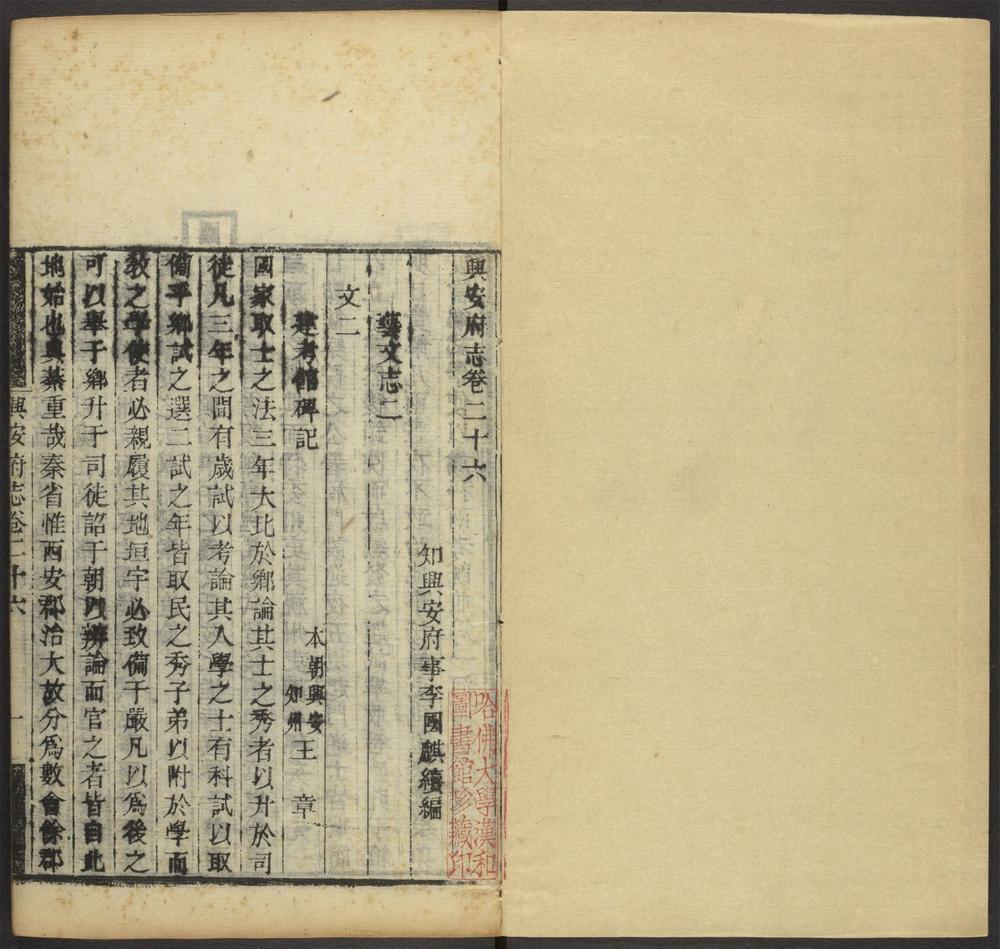 興安府志卷二十六
知興安府事李國麒續編
藝文志二
文二
建考館碑記
本朝興安知州王章
國家取士之法三年大比於鄉論其士之秀者以升於司
徒凡三年之間有歲試以考論其入學之士有科試以取
備乎鄉試之選二試之年皆取民之秀子弟以附於學而
教之學使者必親履其地垣宇必致備于嚴凡以爲後之
可以舉于鄉升于司徒詔于朝以辨論而官之者皆自此
地始也典綦重哉秦省惟西安郡治大故分爲數會餘郡
興安府志卷二十六
一
哈佛大學漢和
圖書館珍藏印